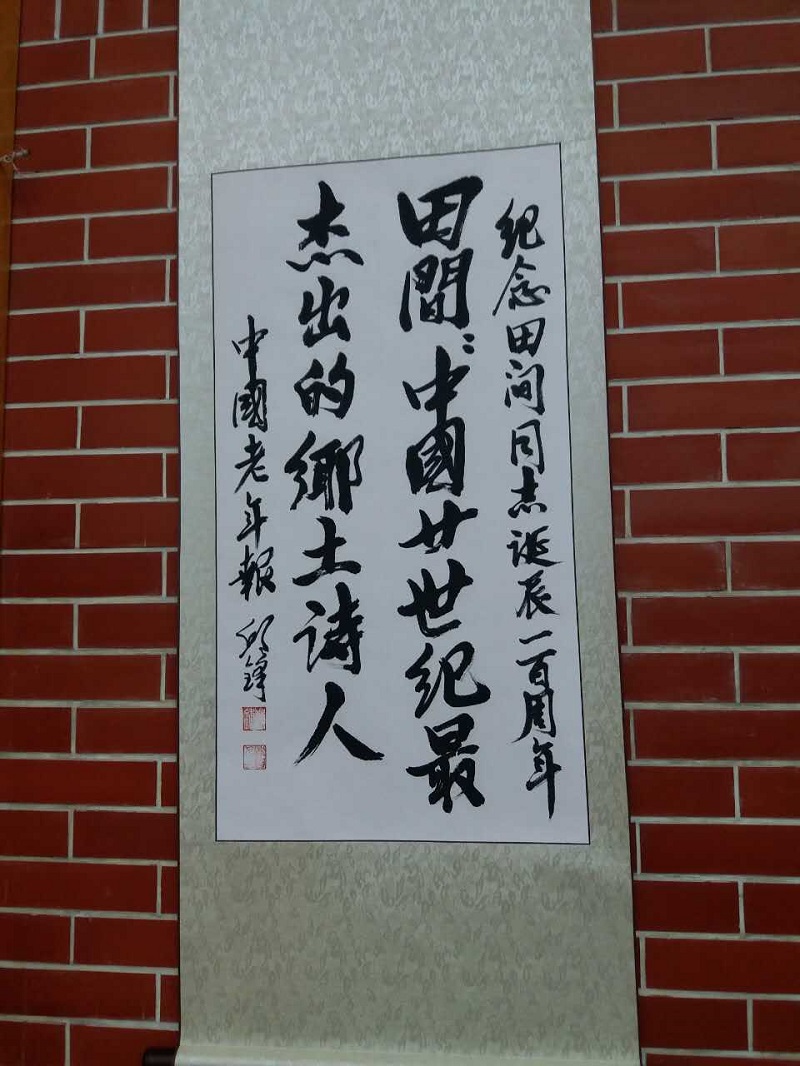 纪念田间同志诞辰一百周年
田間：中國廿世纪最
杰出的鄉土诗人
中國老年報